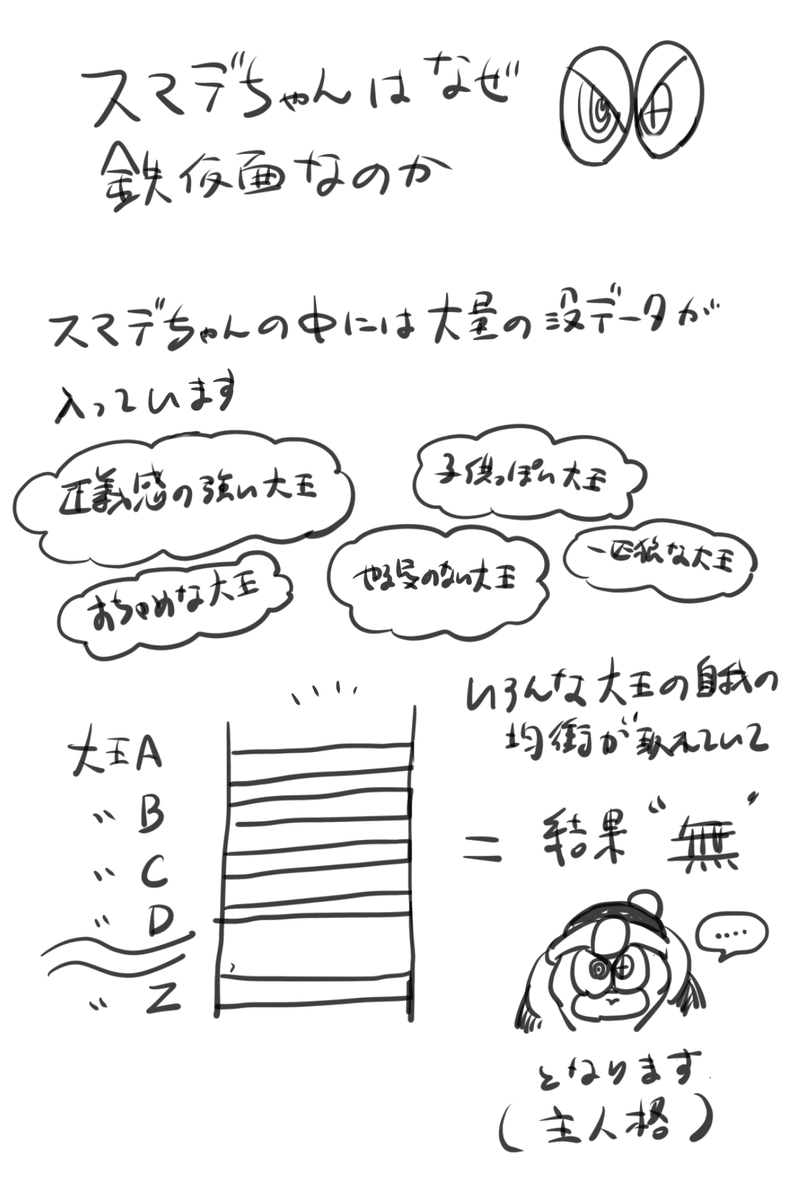 スマデちゃんはなぜ
鉄仮面なのか
スマデちゃんの中には大量の没データが
入っています
正義感の強い大王
子供っぽい大王
一匹狼な大王
やる気のない大王
おちゃめな大王
いろんな大王の自我の
均衡が取れていて
大王A
〃 B
〃 C
〃 D
〃 Z
= 結果“無”
....
となります
(主人格)